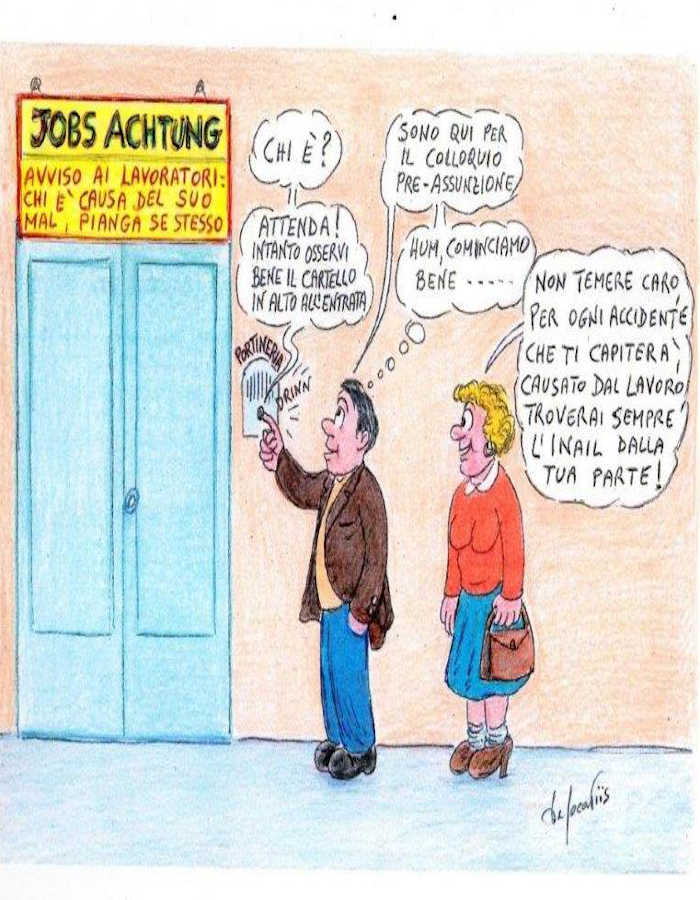 JOBS ACHTUNG
AVVISO AI LAVORATORI:
CHI È CAUSA DEL SUO
MAL, PIANGA SE STESSO
CHI È?
ATTENDA!
INTANTO OSSERVI
BENE IL CARTELLO
IN ALTO ALL'ENTRATA
SONO QUI PER
IL COLLOQUIO
PRE-ASSUNZIONE
HUM, COMINCIAMO
BENE -----
NON TEMERE CARO,
PER OGNI ACCIDENTE
CHE TI CAPITERÀ,
CAUSATO DAL LAVORO
TROVERAI SEMPRE
L'INAIL DALLA
TUA PARTE!
PORTINERIA
DRINN